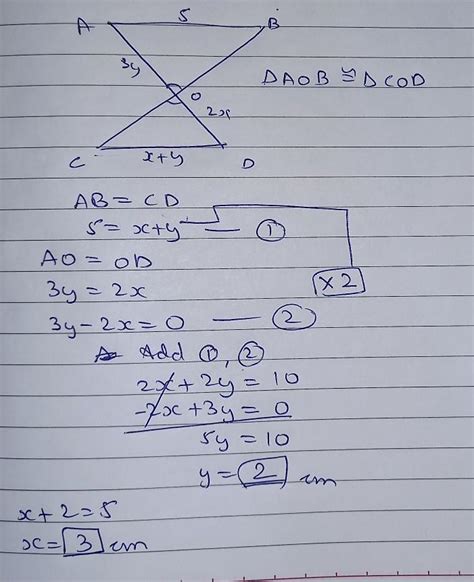 A 5 B
3y
O
2x
C x+y D
DAOB ≅ DCOD
AB = CD
5 = x+y — ①
AO = OD
3y = 2x
× 2
3y - 2x = 0 — ②
Add ①, ②
2x + 2y = 10
-2x + 3y = 0
5y = 10
y = 2 cm
x + 2 = 5
x = 3 cm